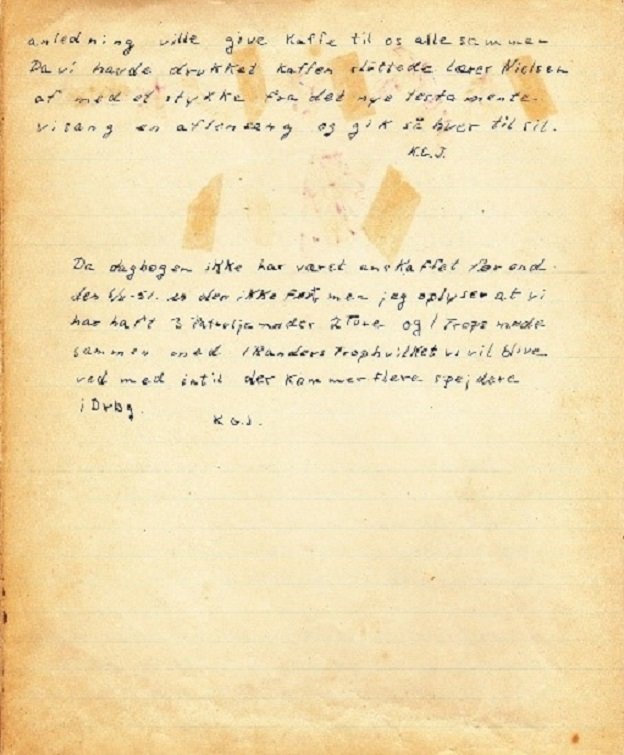 anledning ville give Kaffe til os alle sammen
Da vi havde drukket kaffen sluttede Lærer Nielsen
af med et stykke fra det nye testamente.
vi sang en aftensang og gik så hver til sit.
K.G.J.
Da dagbogen ikke har været anskaffet før end
den -51. er der ikke ført, men jeg oplyser at vi
har haft 3 Patruljemøder 2 Ture og 1 Trops møde
sammen med 1 Randers Trop hvilket vi vil blive
ved med indtil der kommer flere spejdere
i Drbg.
K.G.J.